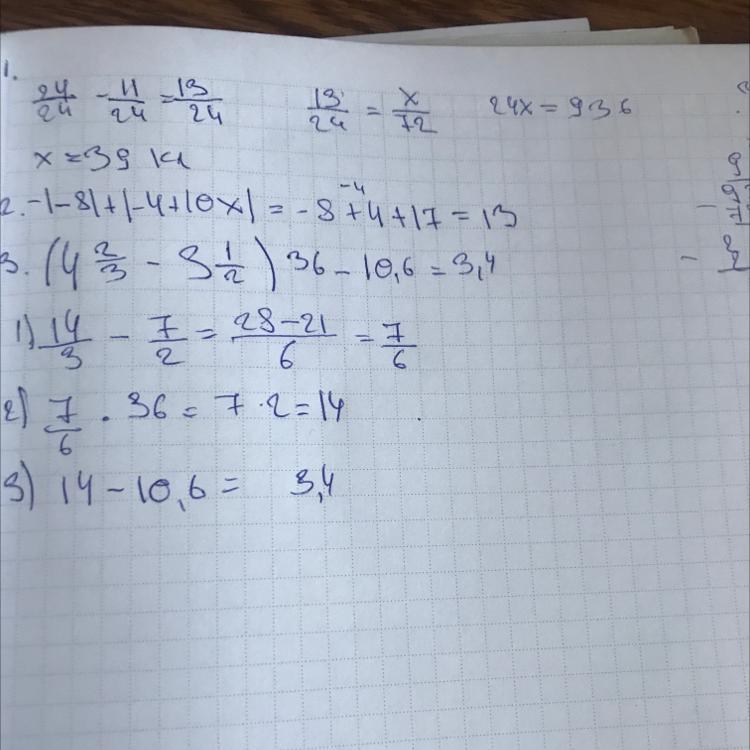 1.
24/24 - 11/24 = 13/24    13/24 = x/72    24x = 936
x = 39 кг
2. -|-8|+|-4+10x| = -8+4+17 = 13
-4
3. (4 2/3 - 3 1/2) 36 - 10,6 = 3,4
1) 14/3 - 7/2 = 28-21/6 = 7/6
2) 7/6 · 36 = 7·2 = 14
3) 14 - 10,6 = 3,4